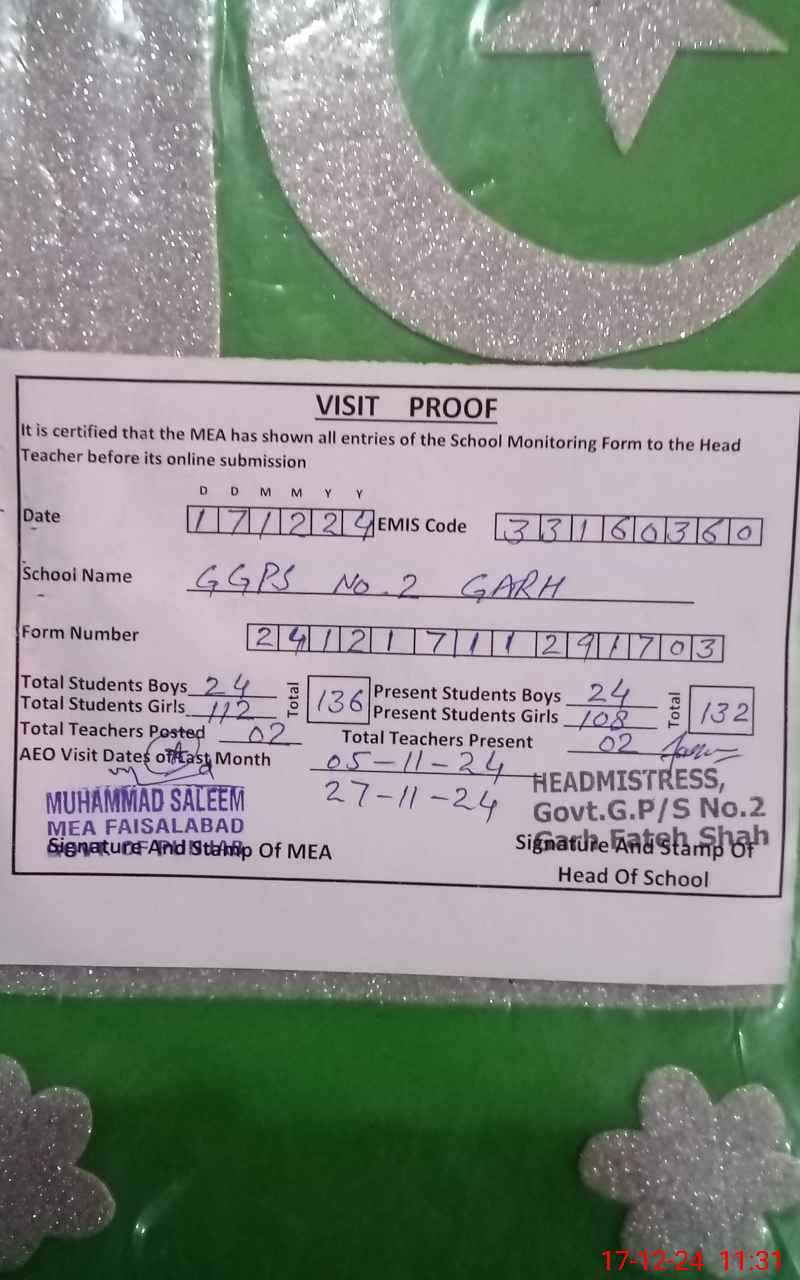 VISIT PROOF
It is certified that the MEA has shown all entries of the School Monitoring Form to the Head
Teacher before its online submission
D D M M Y Y
Date 171224 EMIS Code 33160360
School Name GGPS No.2 GARH
Form Number 24121711291703
Total Students Boys 24 Total 136 Present Students Boys 24 Total 132
Total Students Girls 112 Present Students Girls 108
Total Teachers Posted 02 Total Teachers Present 02
AEO Visit Dates of Last Month 05-11-24
27-11-24
MUHAMMAD SALEEM
MEA FAISALABAD
Signature And Stamp Of MEA
HEADMISTRESS,
Govt.G.P/S No.2
Garh Fateh Shah
Signature And Stamp Of
Head Of School
17-12-24 11:31